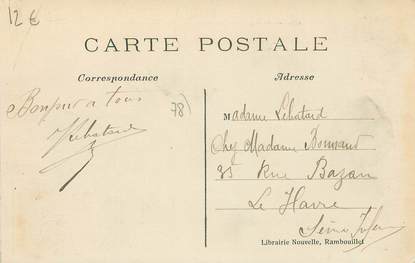 12 €
CARTE POSTALE
Correspondance
Adresse
Bonjour à tous
Lehatard
78)
Madame Lehatard
Chez Madame
35 Rue Bazan
Le Havre
Seine Infer
Librairie Nouvelle, Rambouillet